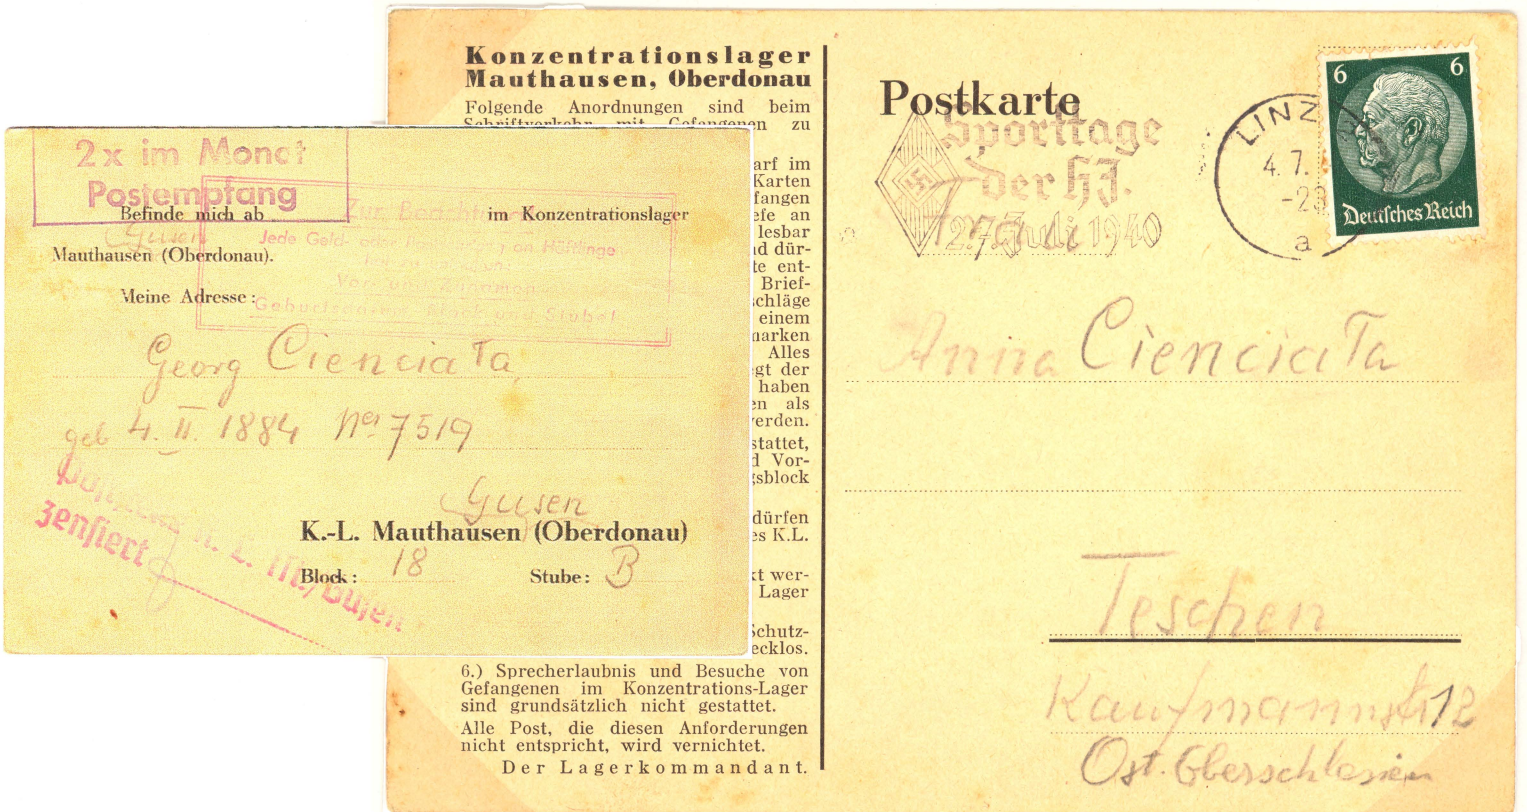 2x im Monat
Postempfang
Befinde mich ab im Konzentrationslager
Gusen
Mauthausen (Oberdonau).
Zur Beachtung
Jede Geld- oder an Häftlinge
Vor- und Zunamen
Geburtsdatum, Block und Stube!
Meine Adresse:
Georg Cienciała
geb 4. II. 1884 Nr 7519
Gusen
K.-L. Mauthausen (Oberdonau)
Block: 18 Stube: B
Postzensiert K. L. M./Gusen
Konzentrationslager
Mauthausen, Oberdonau
Folgende Anordnungen sind beim
Schriftverkehr mit Gefangenen zu
arf im
Karten
fangen
efe an
lesbar
nd dür-
te ent-
Brief-
schläge
einem
marken
Alles
egt der
haben
en als
werden.
stattet,
d Vor-
gsblock
dürfen
es K.L.
kt wer-
Lager
Schutz-
ecklos.
6.) Sprecherlaubnis und Besuche von
Gefangenen im Konzentrations-Lager
sind grundsätzlich nicht gestattet.
Alle Post, die diesen Anforderungen
nicht entspricht, wird vernichtet.
Der Lagerkommandant.
Postkarte
Sporttage
der HJ.
Juli 1940
LINZ
4.7.
a
6 6
Deutsches Reich
Anna Cienciała
Teschen
Kaufmannstr 12
Ost. Oberschlesien